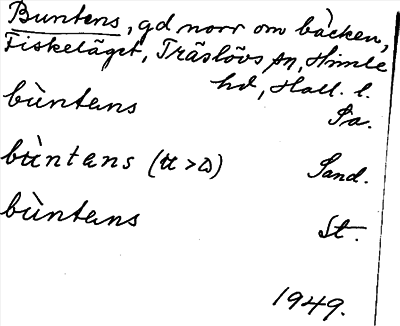 Buntens, gd norr om bäcken,
Fiskeläget, Träslövs sn, Himle
hd, Hall. l.
bùntens Sa.
bùntens (u > ɷ) Sand.
bùntens St.
1949.